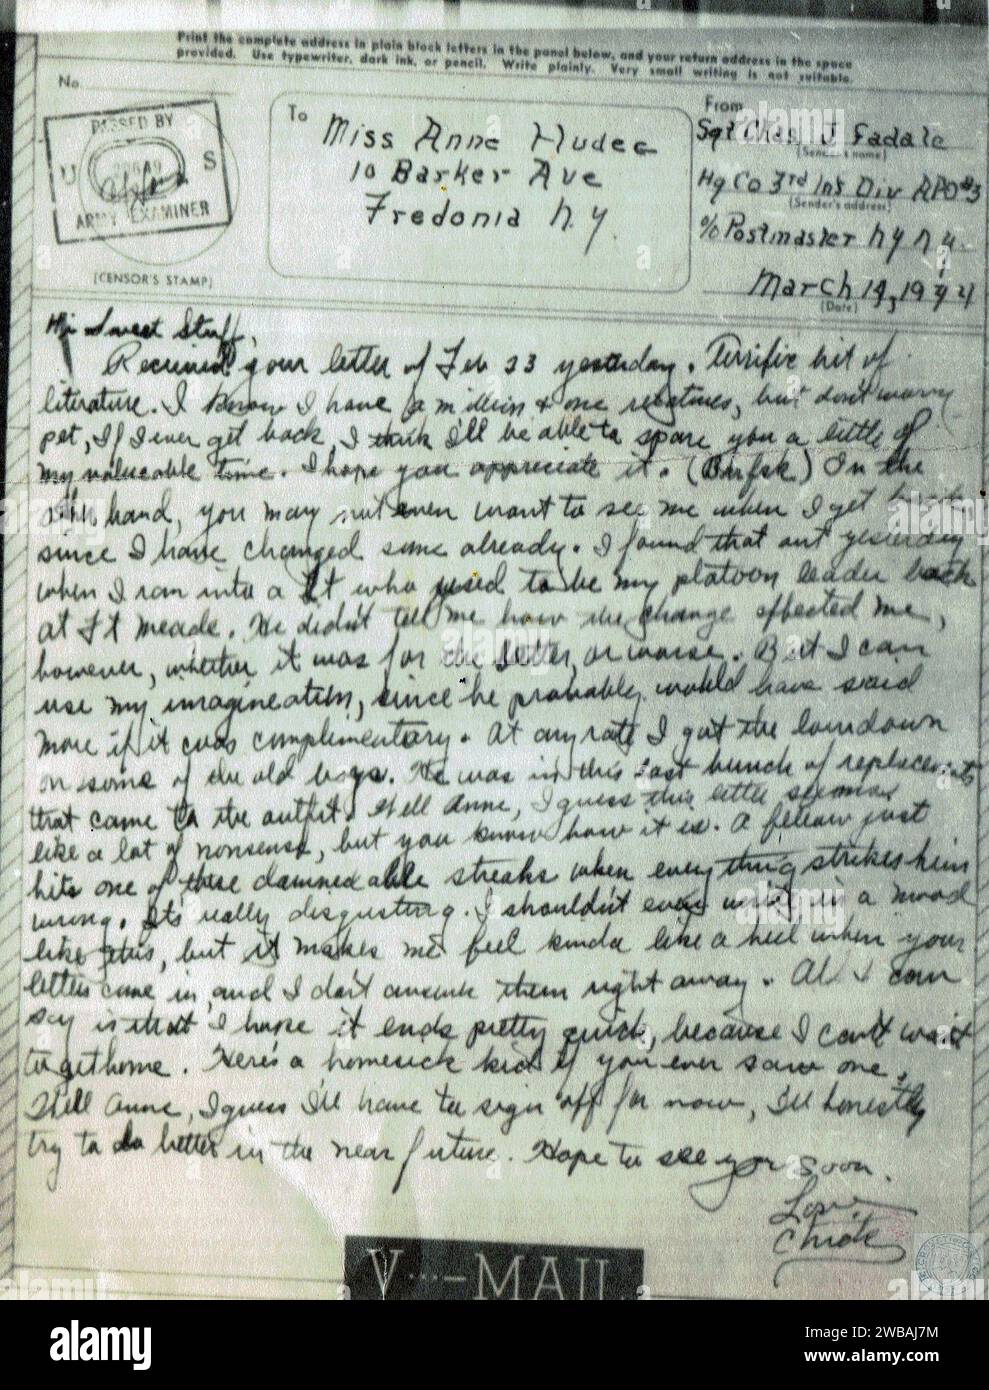 Print the complete address in plain block letters in the panel below, and your return address in the space
provided. Use typewriter, dark ink, or pencil. Write plainly. Very small writing is not suitable.
No.
PASSED BY
U S
ARMY EXAMINER
(CENSOR'S STAMP)
To
Miss Anne Hudec
10 Barker Ave
Fredonia N.Y.
From
Sgt Chas J Fadale
(Sender's name)
Hq Co 3rd Inf Div APO #3
(Sender's address)
c/o Postmaster N Y N.Y.
March 14, 1944
(Date)
Hi Sweet Stuff,
Received your letter of Feb 23 yesterday. Terrific bit of
literature. I know I have a million & one relatives, but don't worry
pet, If I ever get back, I think I'll be able to spare you a little of
my valueable time. I hope you appreciate it. ( ) On the
other hand, you may not even want to see me when I get back
since I have changed some already. I found that out yesterday
when I ran into a Lt who used to be my platoon leader back
at Ft Meade. He didn't tell me how the change affected me,
however, whether it was for the better, or worse. But I can
use my imagineation, since he probably would have said
more if it was complimentary. At any rate I got the lowdown
on some of the old boys. He was in this last bunch of replacements
that came to the outfit. Well Anne, I guess this letter seems
like a lot of nonsense, but you know how it is. A fellow just
hits one of these damnedable streaks when everything strikes him
wrong. Its really disgusting. I shouldn't even write in a mood
like this, but it makes me feel kinda like a heel when your
letters come in, and I don't answer them right away. All I can
say is that I hope it ends pretty quick, because I can't wait
to get home. Here's a homesick kid if you ever saw one.
Well Anne, I guess I'll have to sign off for now, I'll honestly
try to do better in the near future. Hope to see you soon.
Love
Chick
V···–MAIL
alamy
Image ID: 2WBAJ7M
www.alamy.com